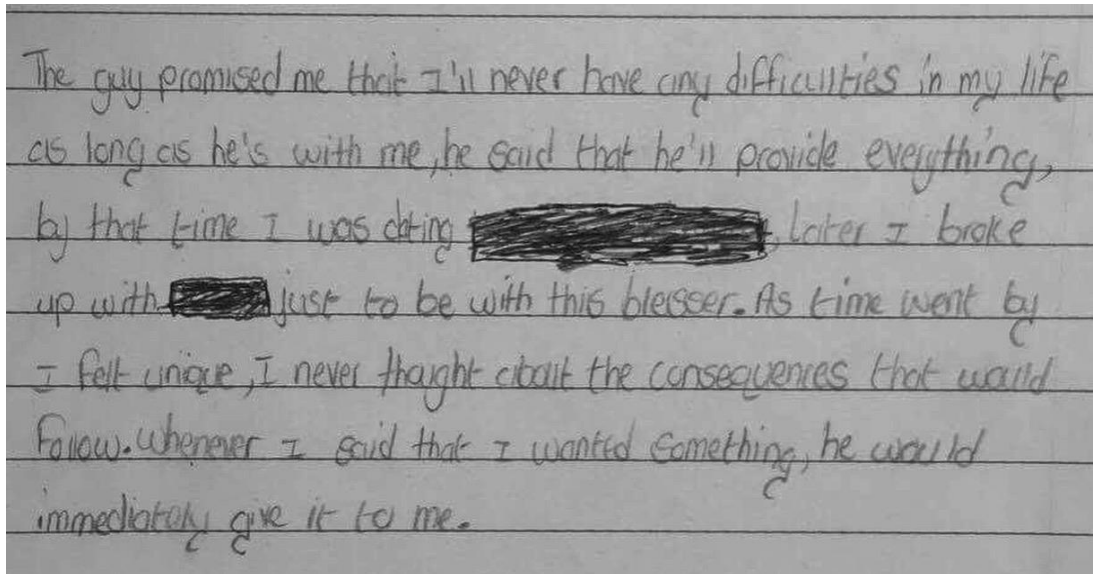 The guy promised me that I'll never have any difficulities in my life
as long as he's with me, he said that he'll provide everything,
by that time I was dating , later I broke
up with just to be with this blesser. As time went by
I felt unique, I never thought about the consequences that would
follow. Whenever I said that I wanted something, he would
immediately give it to me.